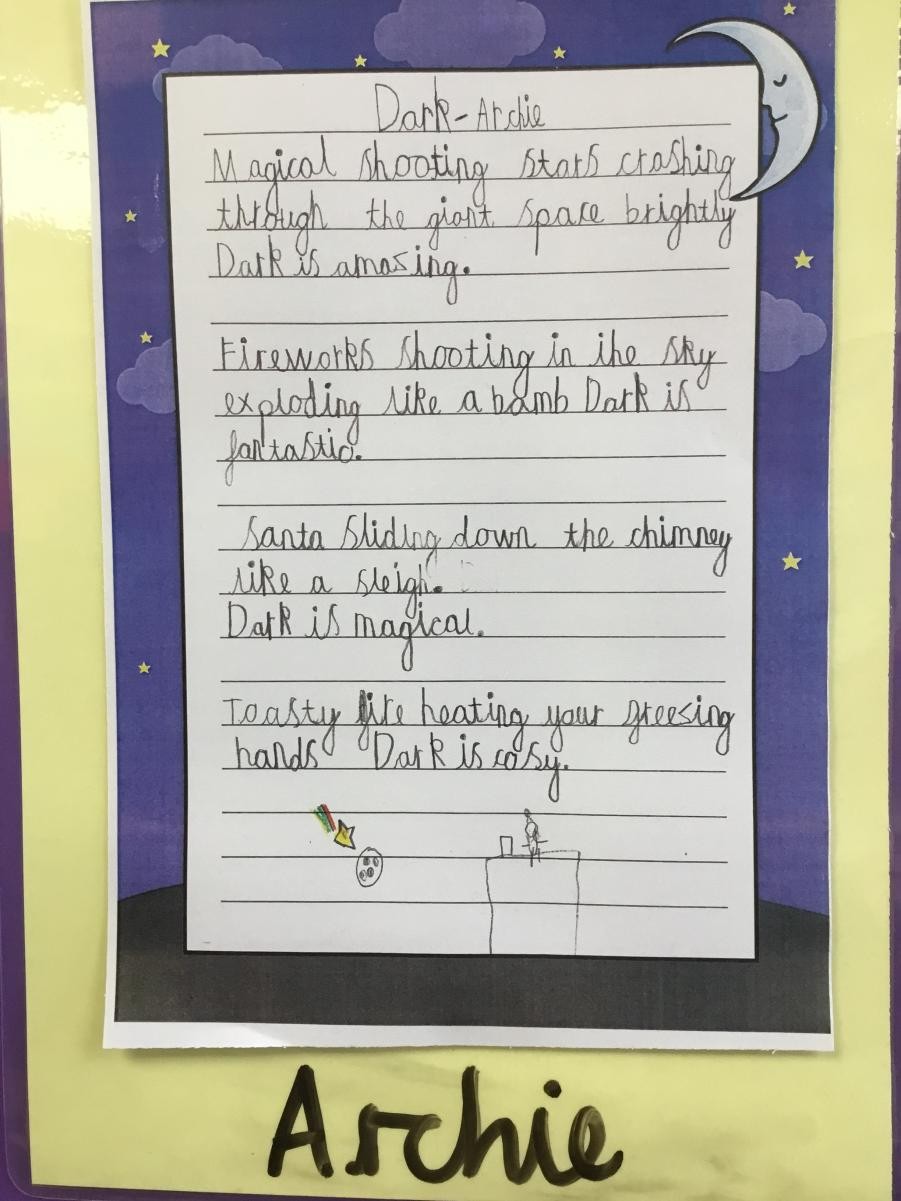 Dark-Archie
Magical shooting stars crashing
through the giant space brightly
Dark is amasing.
Fireworks shooting in the sky
exploding like a bomb Dark is
fantastic.
Santa sliding down the chimney
like a sleigh.
Dark is magical.
Toasty fire heating your freesing
hands Dark is cosy.
Archie